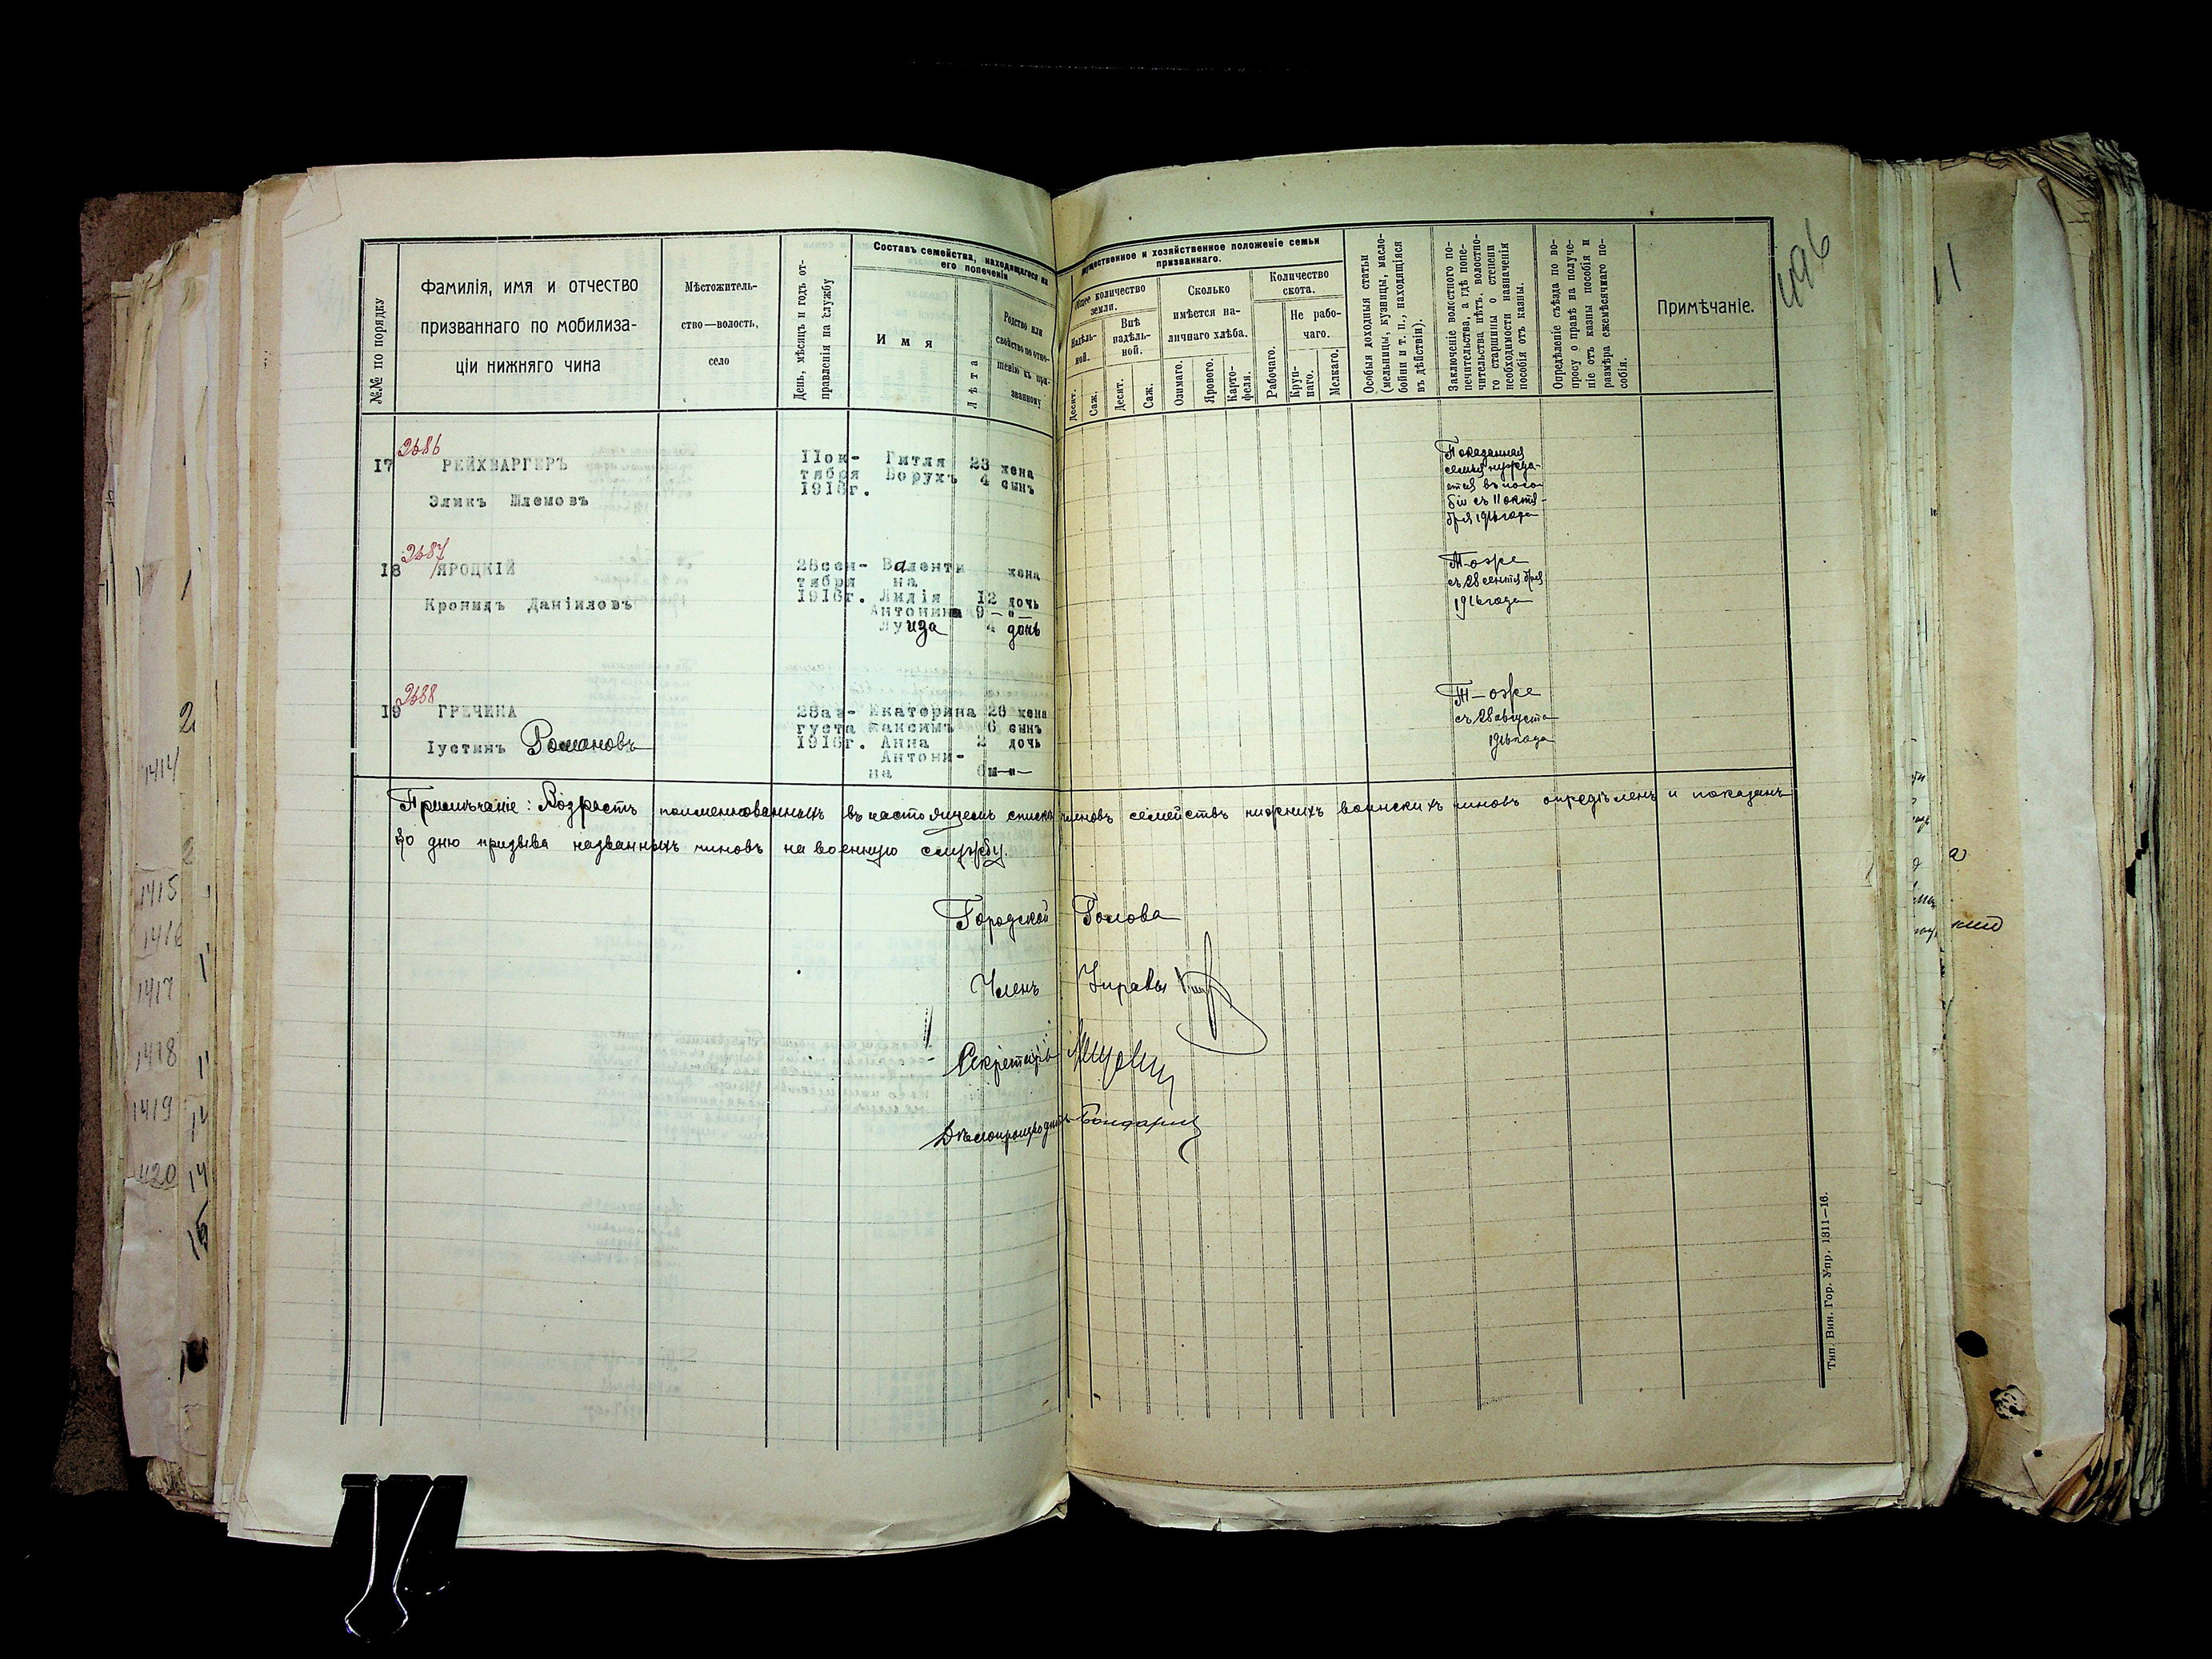 496
11
№№ по порядку
Фамилія, имя и отчество
призваннаго по мобилиза-
ціи нижняго чина
Мѣстожитель-
ство—волость,
село
День, мѣсяцъ и годъ от-
правленія на службу
Составъ семейства, находящагося на
его попеченіи
Имя
Лѣта
Родство или
свойство по отно-
шенію къ при-
званному
имущественное и хозяйственное положеніе семьи
призваннаго.
Общее количество
земли.
Надѣль-
ной.
Внѣ
надѣль-
ной.
Десят.
Саж.
Десят.
Саж.
Сколько
имѣется на-
личнаго хлѣба.
Озимаго.
Ярового.
Карто-
феля.
Количество
скота.
Рабочаго.
Не рабо-
чаго.
Круп-
наго.
Мелкаго.
Особыя доходныя статьи
(мельницы, кузницы, масло-
бойни и т. п., находящіяся
въ дѣйствіи).
Заключеніе волостного по-
печительства, а гдѣ попе-
чительства нѣтъ, волостно-
го старшины о степени
необходимости назначенія
пособія отъ казны.
Опредѣленіе съѣзда по во-
просу о правѣ на получе-
ніе отъ казны пособія и
размѣра ежемѣсячнаго по-
собія.
Примѣчаніе.
2686
17 РЕЙХВАРГЕРЪ
Эликъ Шлемовъ
11ок-
тября
1916г.
Гитля 23 жена
Борухъ 4 сынъ
Показанная
семья нужда-
ется въ посо-
біи съ 11 октя-
бря 1916 года
2687
18 ЯРОЦКІЙ
Кронидъ Даніиловъ
28сен-
тября
1916г.
Валенти жена
на
Лидія 12 дочь
Антонина 9 —"—
Луиза 4 дочь
То-же
съ 28 сентября
1916 года
2688
19 ГРЕЧИНА
Іустинъ Романовъ
28ав-
густа
1916г.
Екатерина 26 жена
Максимъ 6 сынъ
Анна 2 дочь
Антони-
на 6м—"—
То-же
съ 28 августа
1916 года
Примѣчаніе: Возрастъ поименнованныхъ въ настоящемъ списке членовъ семействъ нижнихъ воинскихъ чиновъ опредѣленъ и показанъ
ко дню призыва названныхъ чиновъ на военную службу.
Городской Голова
Членъ Управы
Секретарь
Дѣлопроизводитель
Тип. Вин. Гор. Упр. 1311—16.
1414
1415
1416
1417
1418
1419
1420